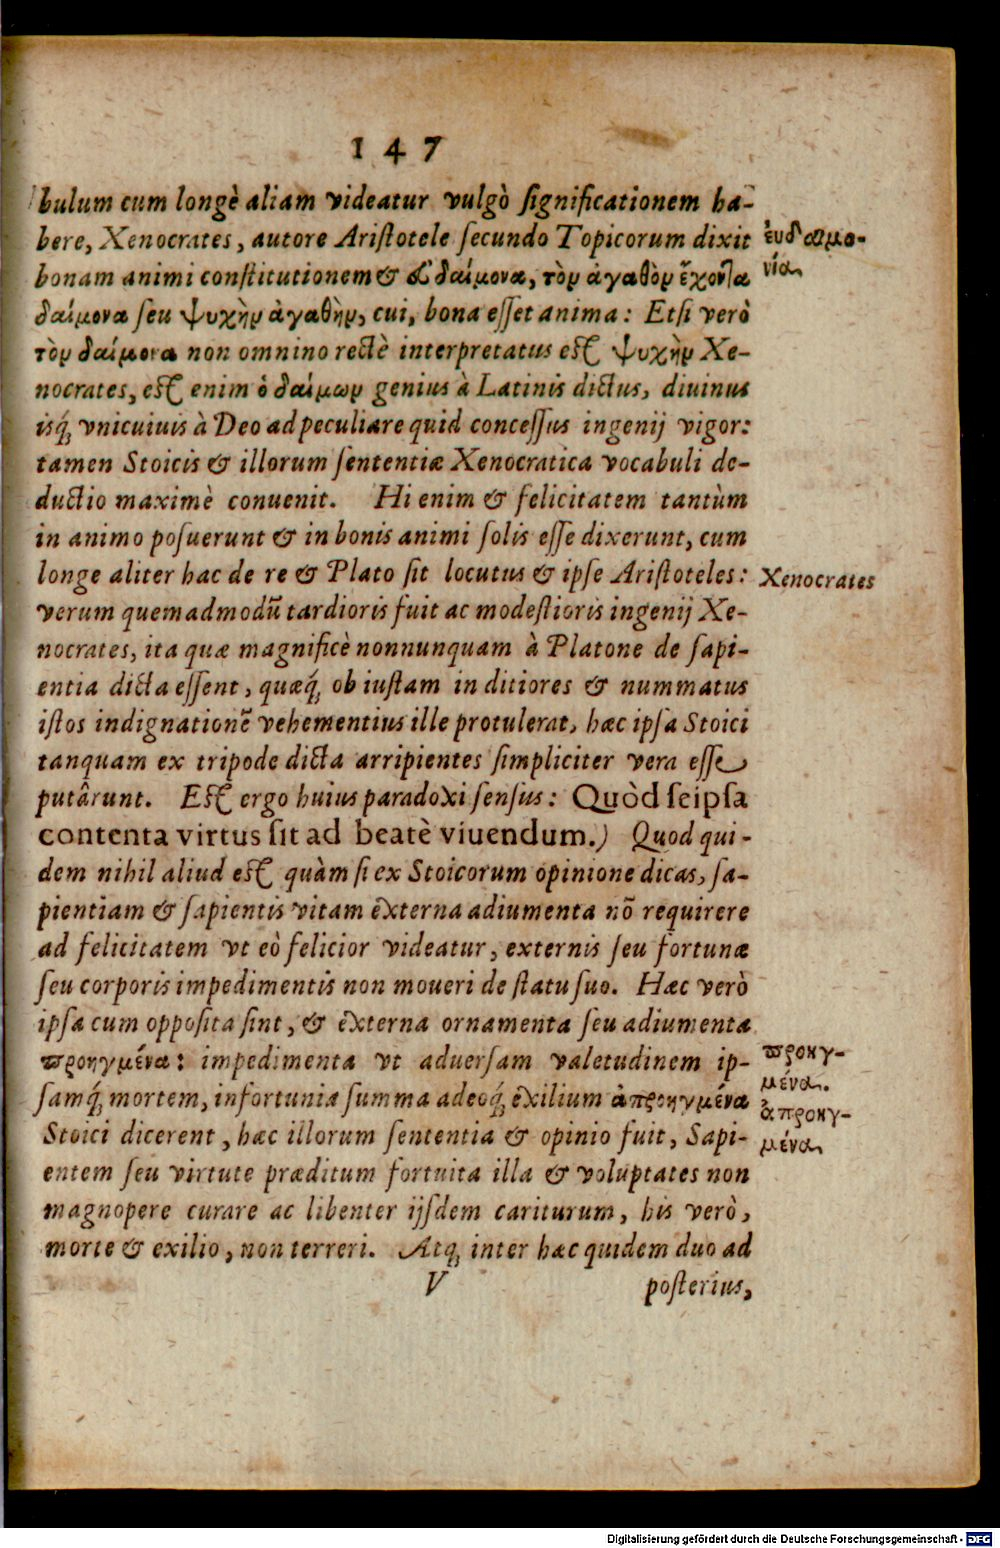 147
bulum cum longè aliam videatur vulgò ſignificationem ha-
bere, Xenocrates, autore Ariſtotele ſecundo Topicorum dixit
ἐυδαιμο-
νία
bonam animi conſtitutionem & ἐυδαίμονα, τὸν ἀγαθὸν ἔχοντα
δαίμονα ſeu ψυχὴν ἀγαθὴν, cui, bona eſſet anima: Etſi verò
τὸν δαίμονα non omnino rectè interpretatus eſt ψυχὴν Xe-
nocrates, eſt enim ὁ δαίμων genius à Latinis dictus, diuinus
isq́ꝫ vnicuiuis à Deo ad peculiare quid conceſſus ingenij vigor:
tamen Stoicis & illorum ſententiæ Xenocratica vocabuli de-
ductio maximè conuenit. Hi enim & felicitatem tantùm
in animo poſuerunt & in bonis animi ſolis eſſe dixerunt, cum
longe aliter hac de re & Plato ſit locutus & ipſe Ariſtoteles:
Xenocrates
verum quemadmodũ tardioris fuit ac modeſtioris ingenij Xe-
nocrates, ita quæ magnificè nonnunquam à Platone de ſapi-
entia dicta eſſent, quæq́ꝫ ob iuſtam in ditiores & nummatus
iſtos indignationẽ vehementius ille protulerat, hæc ipſa Stoici
tanquam ex tripode dicta arripientes ſimpliciter vera eſſe
putârunt. Eſt ergo huius paradoxi ſenſus: Quòd ſeipſa
contenta virtus ſit ad beatè viuendum.) Quod qui-
dem nihil aliud eſt quàm ſi ex Stoicorum opinione dicas, ſa-
pientiam & ſapientis vitam externa adiumenta nõ requirere
ad felicitatem vt eò felicior videatur, externis ſeu fortunæ
ſeu corporis impedimentis non moueri de ſtatu ſuo. Hæc verò
ipſa cum oppoſita ſint, & externa ornamenta ſeu adiumenta
προηγμένα: impedimenta vt aduerſam valetudinem ip-
προηγ-
μένα.
ſamq́ꝫ mortem, infortunia ſumma adeoq́ꝫ exilium ἀπροηγμένα
ἀπροηγ-
μένα
Stoici dicerent, hæc illorum ſententia & opinio fuit, Sapi-
entem ſeu virtute præditum fortuita illa & voluptates non
magnopere curare ac libenter ijſdem cariturum, his verò,
morte & exilio, non terreri. Atqꝫ inter hæc quidem duo ad
V
poſterius,
Digitalisierung gefördert durch die Deutsche Forschungsgemeinschaft - DFG